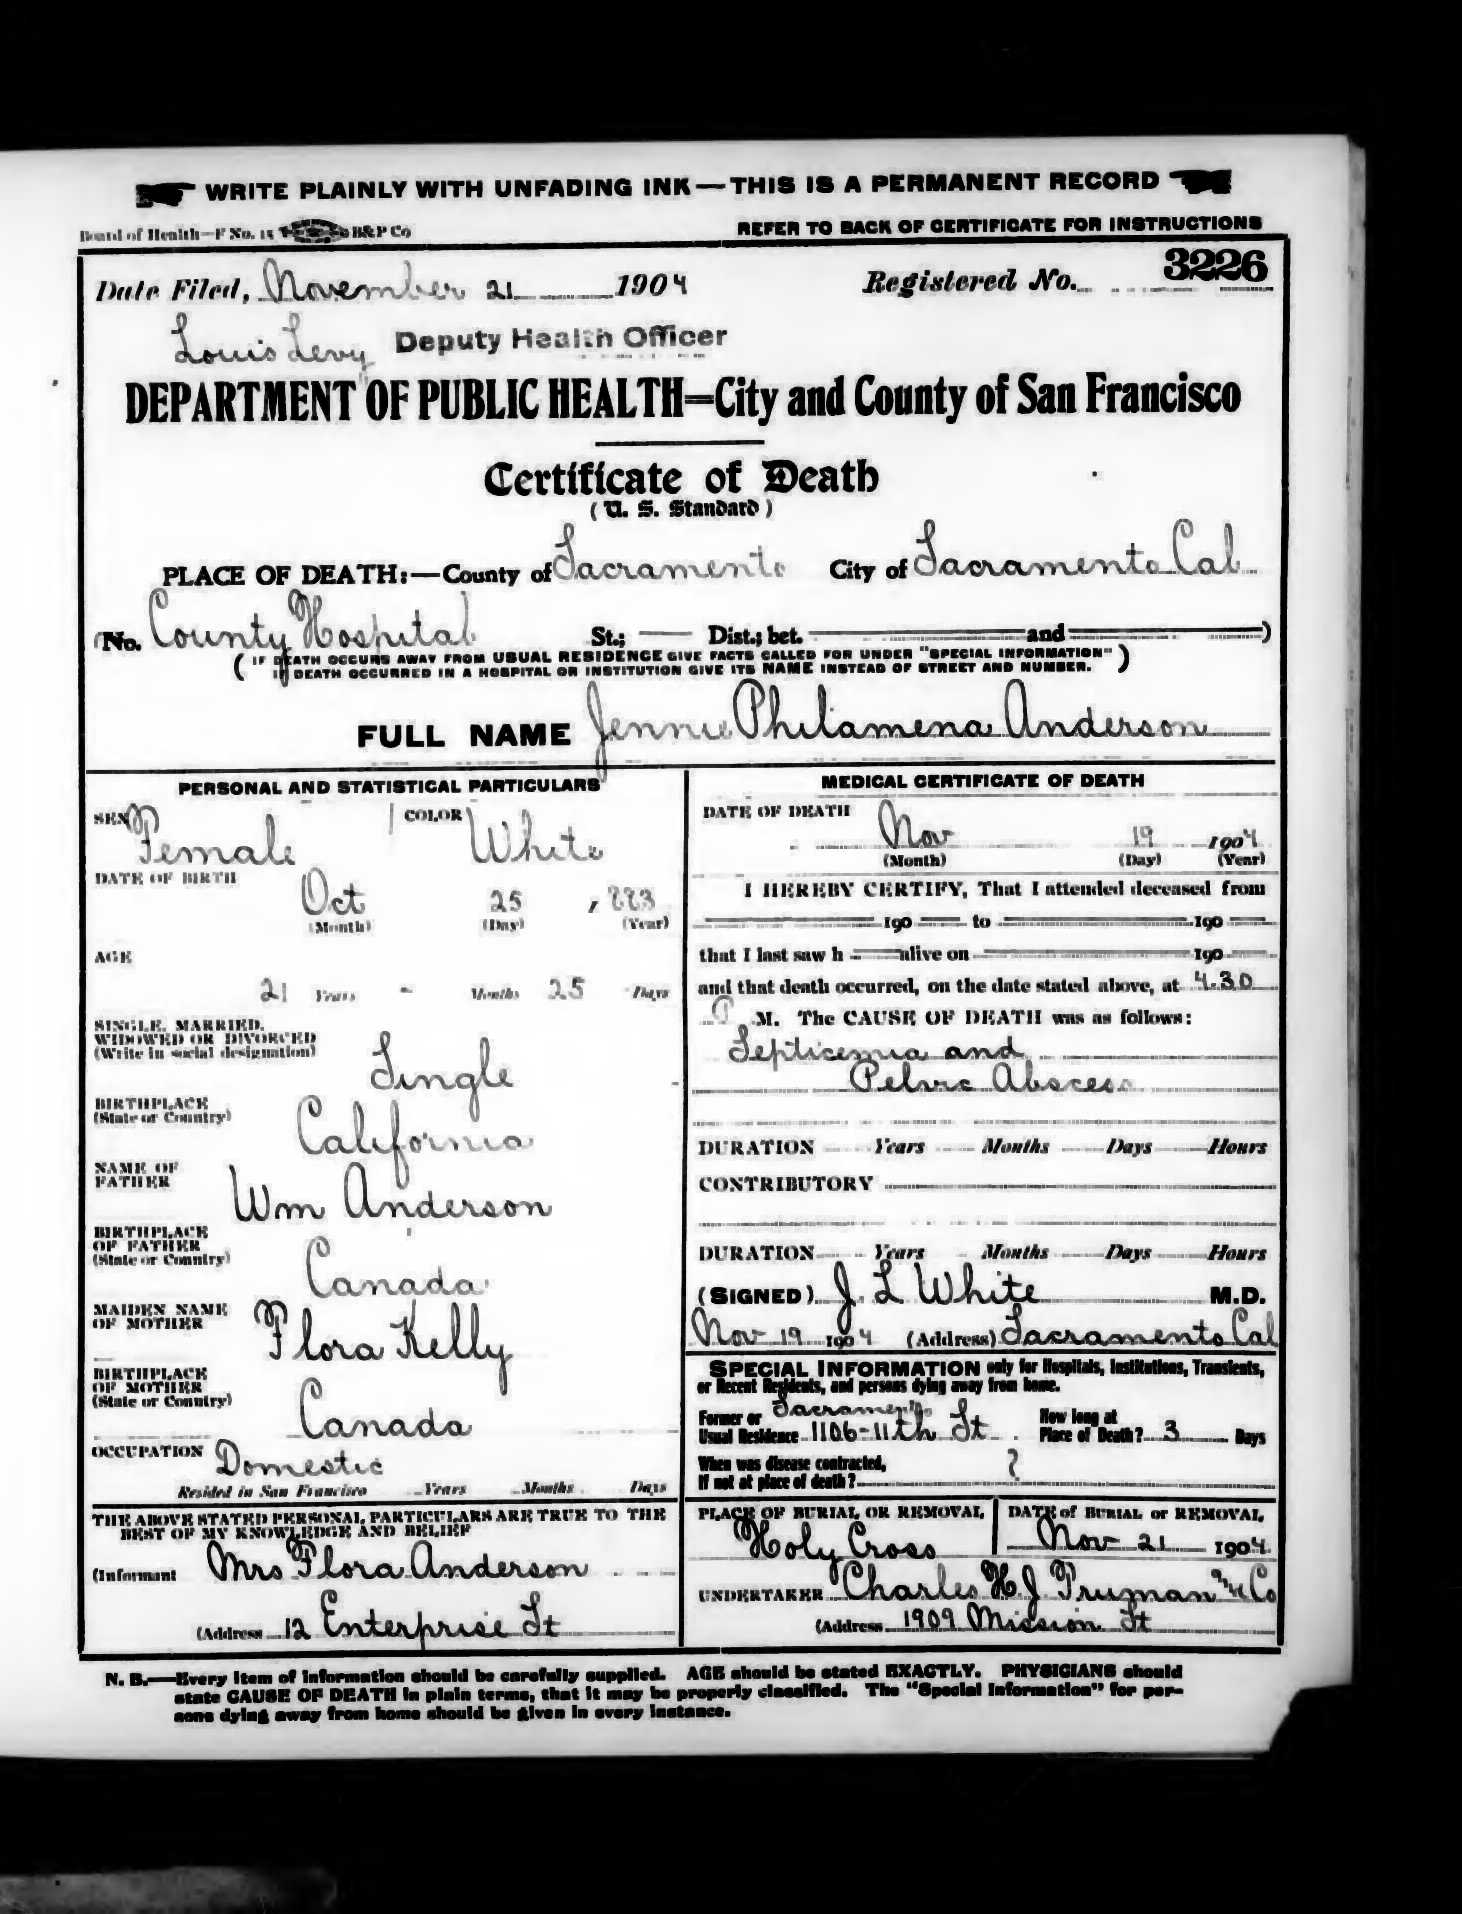 WRITE PLAINLY WITH UNFADING INK—THIS IS A PERMANENT RECORD
Board of Health—F No. 15 B&P Co REFER TO BACK OF CERTIFICATE FOR INSTRUCTIONS
Date Filed, November 21 1904 Registered No. 3226
Louis Levy Deputy Health Officer
DEPARTMENT OF PUBLIC HEALTH—City and County of San Francisco
Certificate of Death
(U. S. Standard)
PLACE OF DEATH:—County of Sacramento City of Sacramento Cal
(No. County Hospital St.; Dist.; bet. and )
(IF DEATH OCCURS AWAY FROM USUAL RESIDENCE GIVE FACTS CALLED FOR UNDER "SPECIAL INFORMATION"
IF DEATH OCCURRED IN A HOSPITAL OR INSTITUTION GIVE ITS NAME INSTEAD OF STREET AND NUMBER.)
FULL NAME Jennie Philamena Anderson
PERSONAL AND STATISTICAL PARTICULARS
SEX Female COLOR White
DATE OF BIRTH
Oct 25 , 883
(Month) (Day) (Year)
AGE
21 Years - Months 25 Days
SINGLE, MARRIED,
WIDOWED OR DIVORCED
(Write in social designation) Single
BIRTHPLACE
(State or Country) California
NAME OF
FATHER Wm Anderson
BIRTHPLACE
OF FATHER
(State or Country) Canada
MAIDEN NAME
OF MOTHER Flora Kelly
BIRTHPLACE
OF MOTHER
(State or Country) Canada
OCCUPATION Domestic
Resided in San Francisco Years Months Days
THE ABOVE STATED PERSONAL PARTICULARS ARE TRUE TO THE
BEST OF MY KNOWLEDGE AND BELIEF
(Informant Mrs Flora Anderson
(Address 12 Enterprise St
MEDICAL CERTIFICATE OF DEATH
DATE OF DEATH
Nov 19 1904
(Month) (Day) (Year)
I HEREBY CERTIFY, That I attended deceased from
190 to 190
that I last saw h alive on 190
and that death occurred, on the date stated above, at 4.30
P M. The CAUSE OF DEATH was as follows:
Septicemia and
Pelvic Abscess
DURATION Years Months Days Hours
CONTRIBUTORY
DURATION Years Months Days Hours
(SIGNED) J. L White M.D.
Nov 19 1904 (Address) Sacramento Cal
SPECIAL INFORMATION only for Hospitals, Institutions, Transients,
or Recent Residents, and persons dying away from home.
Former or Sacramento How long at
Usual Residence 1106-11th St Place of Death? 3 Days
When was disease contracted,
If not at place of death? ?
PLACE OF BURIAL OR REMOVAL DATE of BURIAL or REMOVAL
Holy Cross Nov 21 1904
UNDERTAKER Charles H. J Truman & Co
(Address 1909 Mission St
N. B.—Every item of information should be carefully supplied. AGE should be stated EXACTLY. PHYSICIANS should
state CAUSE OF DEATH in plain terms, that it may be properly classified. The "Special Information" for per-
sons dying away from home should be given in every instance.